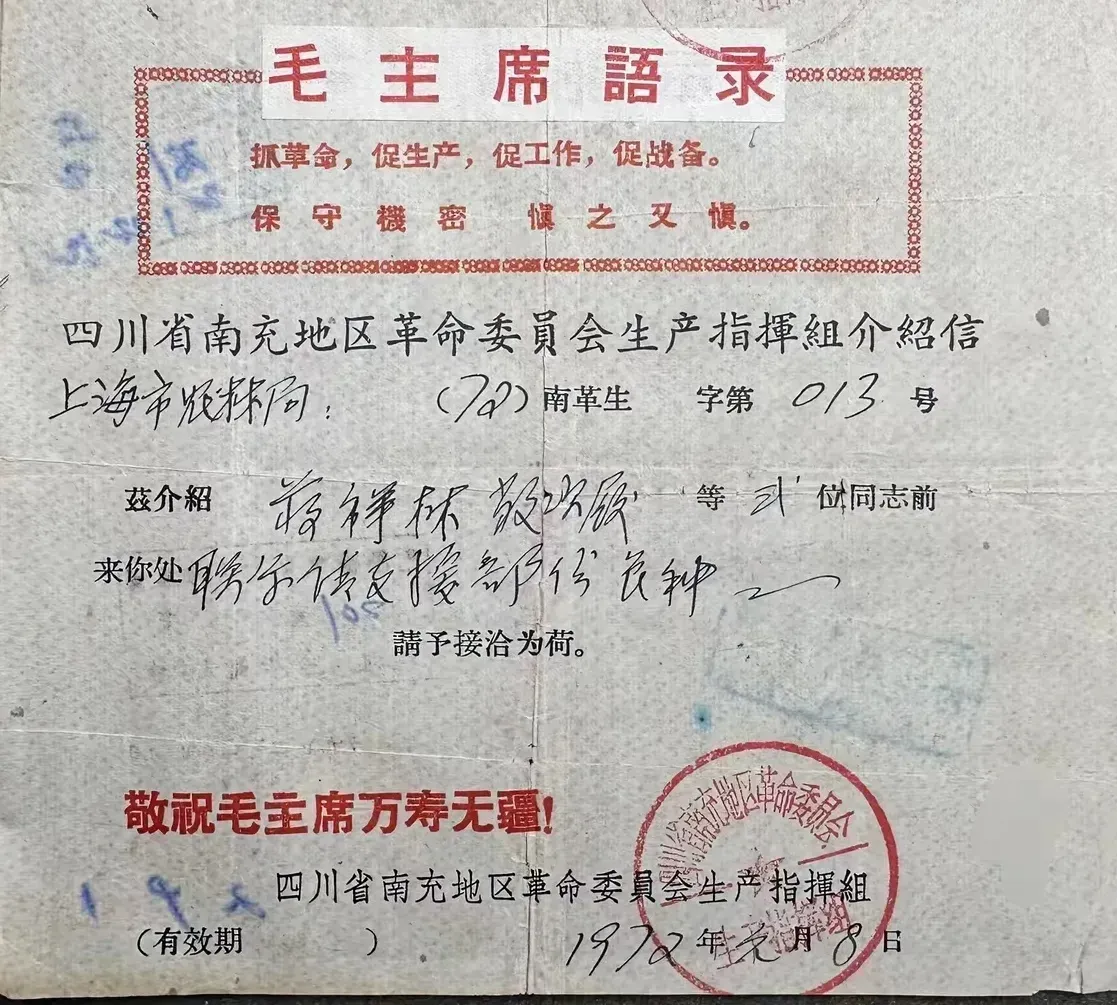 毛主席語录
抓革命，促生产，促工作，促战备。
保守機密 慎之又慎。
四川省南充地区革命委員会生产指揮組介紹信
上海市农林局：（72）南革生 字第 013 号
茲介紹 蒋祥林 等 弍 位同志前
来你处联系请支援部份良种
請予接洽为荷。
敬祝毛主席万寿无疆！
四川省南充地区革命委员会
生产指揮組
四川省南充地区革命委員会生产指揮組
（有效期 ） 1972年元月8日